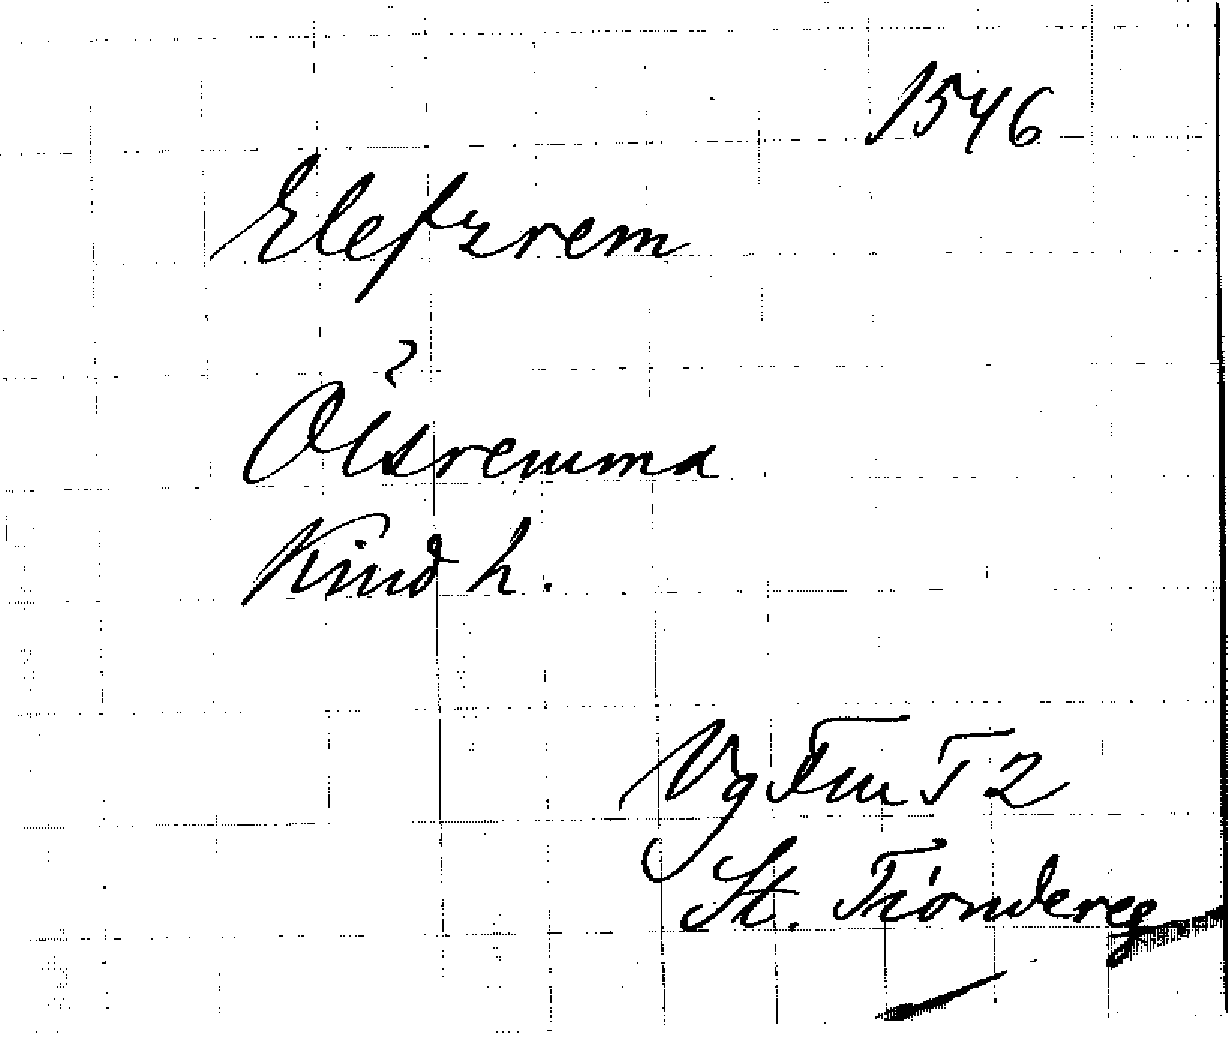 1546
Elefzrem
?
Ölsremma
Kind h.
Vg Fm T 2
St. Tiondereg